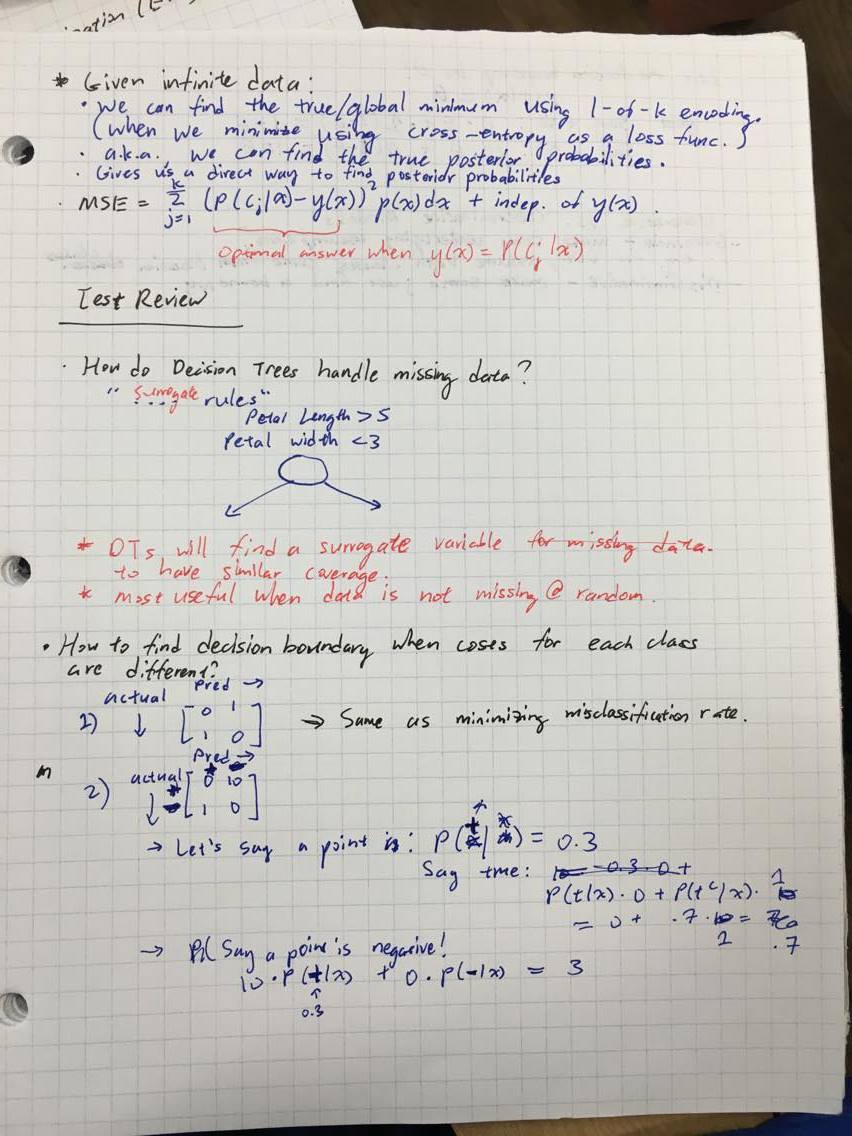 ination (E
* Given infinite data:
• We can find the true/global minimum using 1-of-k encoding.
(when we minimize using cross-entropy as a loss func.)
• a.k.a., we can find the true posterior probabilities.
• Gives us a direct way to find posterior probabilities
• MSE = Σ_{j=1}^{k} (P(C_j|x) - y(x))² p(x)dx + indep. of y(x).
Optimal answer when y(x) = P(C_j|x)
Test Review
• How do Decision Trees handle missing data?
"Surrogate rules"
Petal Length > 5
Petal width < 3
* DTs will find a surrogate variable for missing data.
to have similar coverage.
* most useful when data is not missing @ random.
• How to find decision boundary when coses for each class
are different?
Pred →
actual
1) ↓ [0 1
1 0] → Same as minimizing misclassification rate.
Pred →
m
2) actual ↓ + - [0 10
1 0]
→ Let's say a point is: P(+|x) = 0.3
Say true: 10 - 0.3 · 0 +
P(t/x) · 0 + P(t^c/x) · 1
= 0 + .7 · 1 = .7
→ Say a point is negative!
10 · P(+|x) + 0 · P(-|x) = 3
↑
0.3